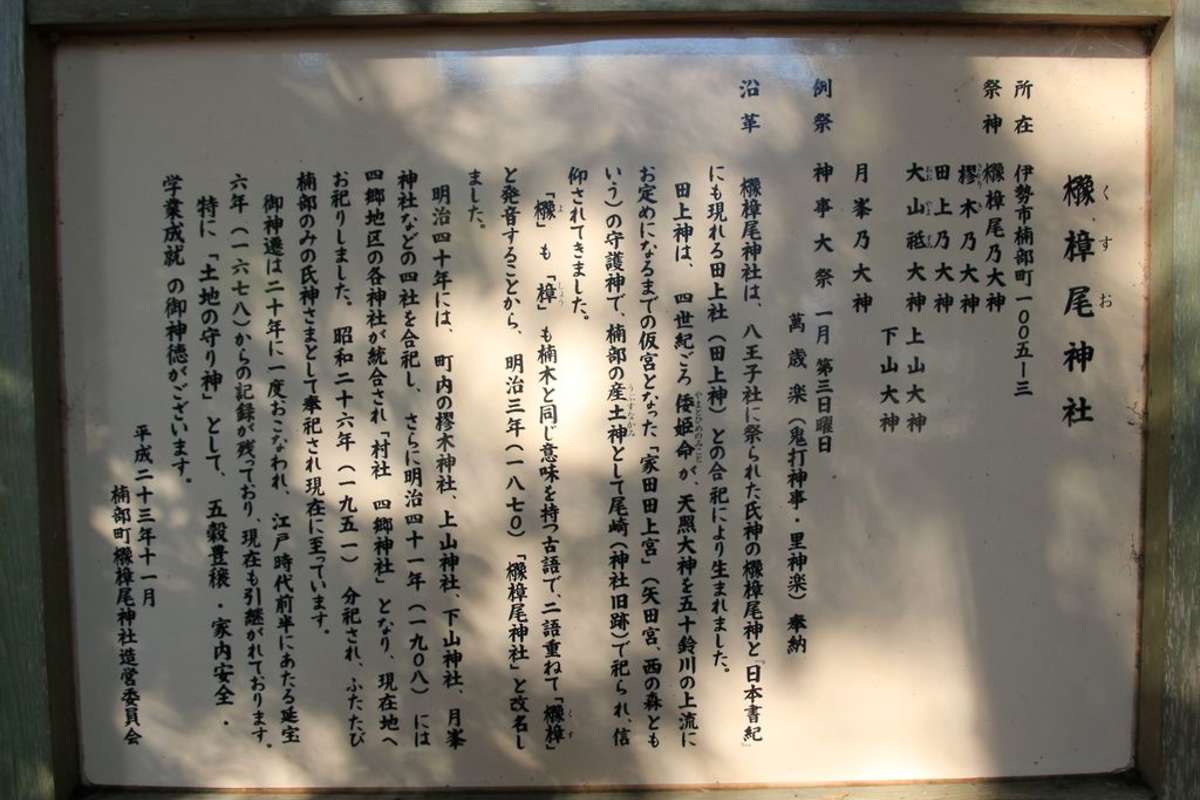 櫲樟尾神社
くすお
所在 伊勢市楠部町一〇〇五ー三
祭神 櫲樟尾乃大神
樛木乃大神
田上乃大神
大山祗大神 上山大神
おおやまずみ 下山大神
月峯乃大神
例祭 神事大祭 一月第三日曜日
萬歳楽(鬼打神事・里神楽)奉納
沿革 櫲樟尾神社は、八王子社に祭られた氏神の櫲樟尾神と『日本書紀』
にも現れる田上社(田上神)との合祀により生まれました。
田上神は、四世紀ごろ倭姫命が、天照大神を五十鈴川の上流に
やまとひめのみこと
お定めになるまでの仮宮となった「家田田上宮」(矢田宮、西の森とも
いう)の守護神で、楠部の産土神として尾崎(神社旧跡)で祀られ、信
うぶすながみ
仰されてきました。
「櫲」も「樟」も楠木と同じ意味を持つ古語で、二語重ねて「櫲樟」
よ しょう くす
と発音することから、明治三年(一八七〇)「櫲樟尾神社」と改名し
ました。
明治四十年には、町内の樛木神社、上山神社、下山神社、月峯
神社などの四社を合祀し、さらに明治四十一年(一九〇八)には
四郷地区の各神社が統合され「村社 四郷神社」となり、現在地へ
お祀りしました。昭和二十六年(一九五一)分祀され、ふたたび
楠部のみの氏神さまとして奉祀され現在に至っています。
御神遷は二十年に一度おこなわれ、江戸時代前半にあたる延宝
六年(一六七八)からの記録が残っており、現在も引継がれております。
特に「土地の守り神」として、五穀豊穣・家内安全・
学業成就の御神徳がございます。
平成二十三年十一月
楠部町櫲樟尾神社造営委員会